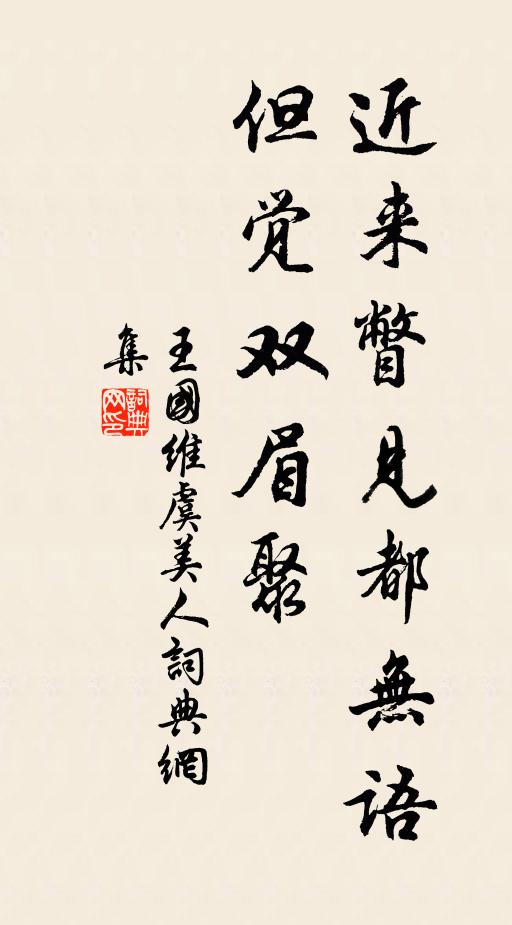 近来瞥見都無語
但觉双眉聚
王國維虞美人詞典網
集
詞典网印